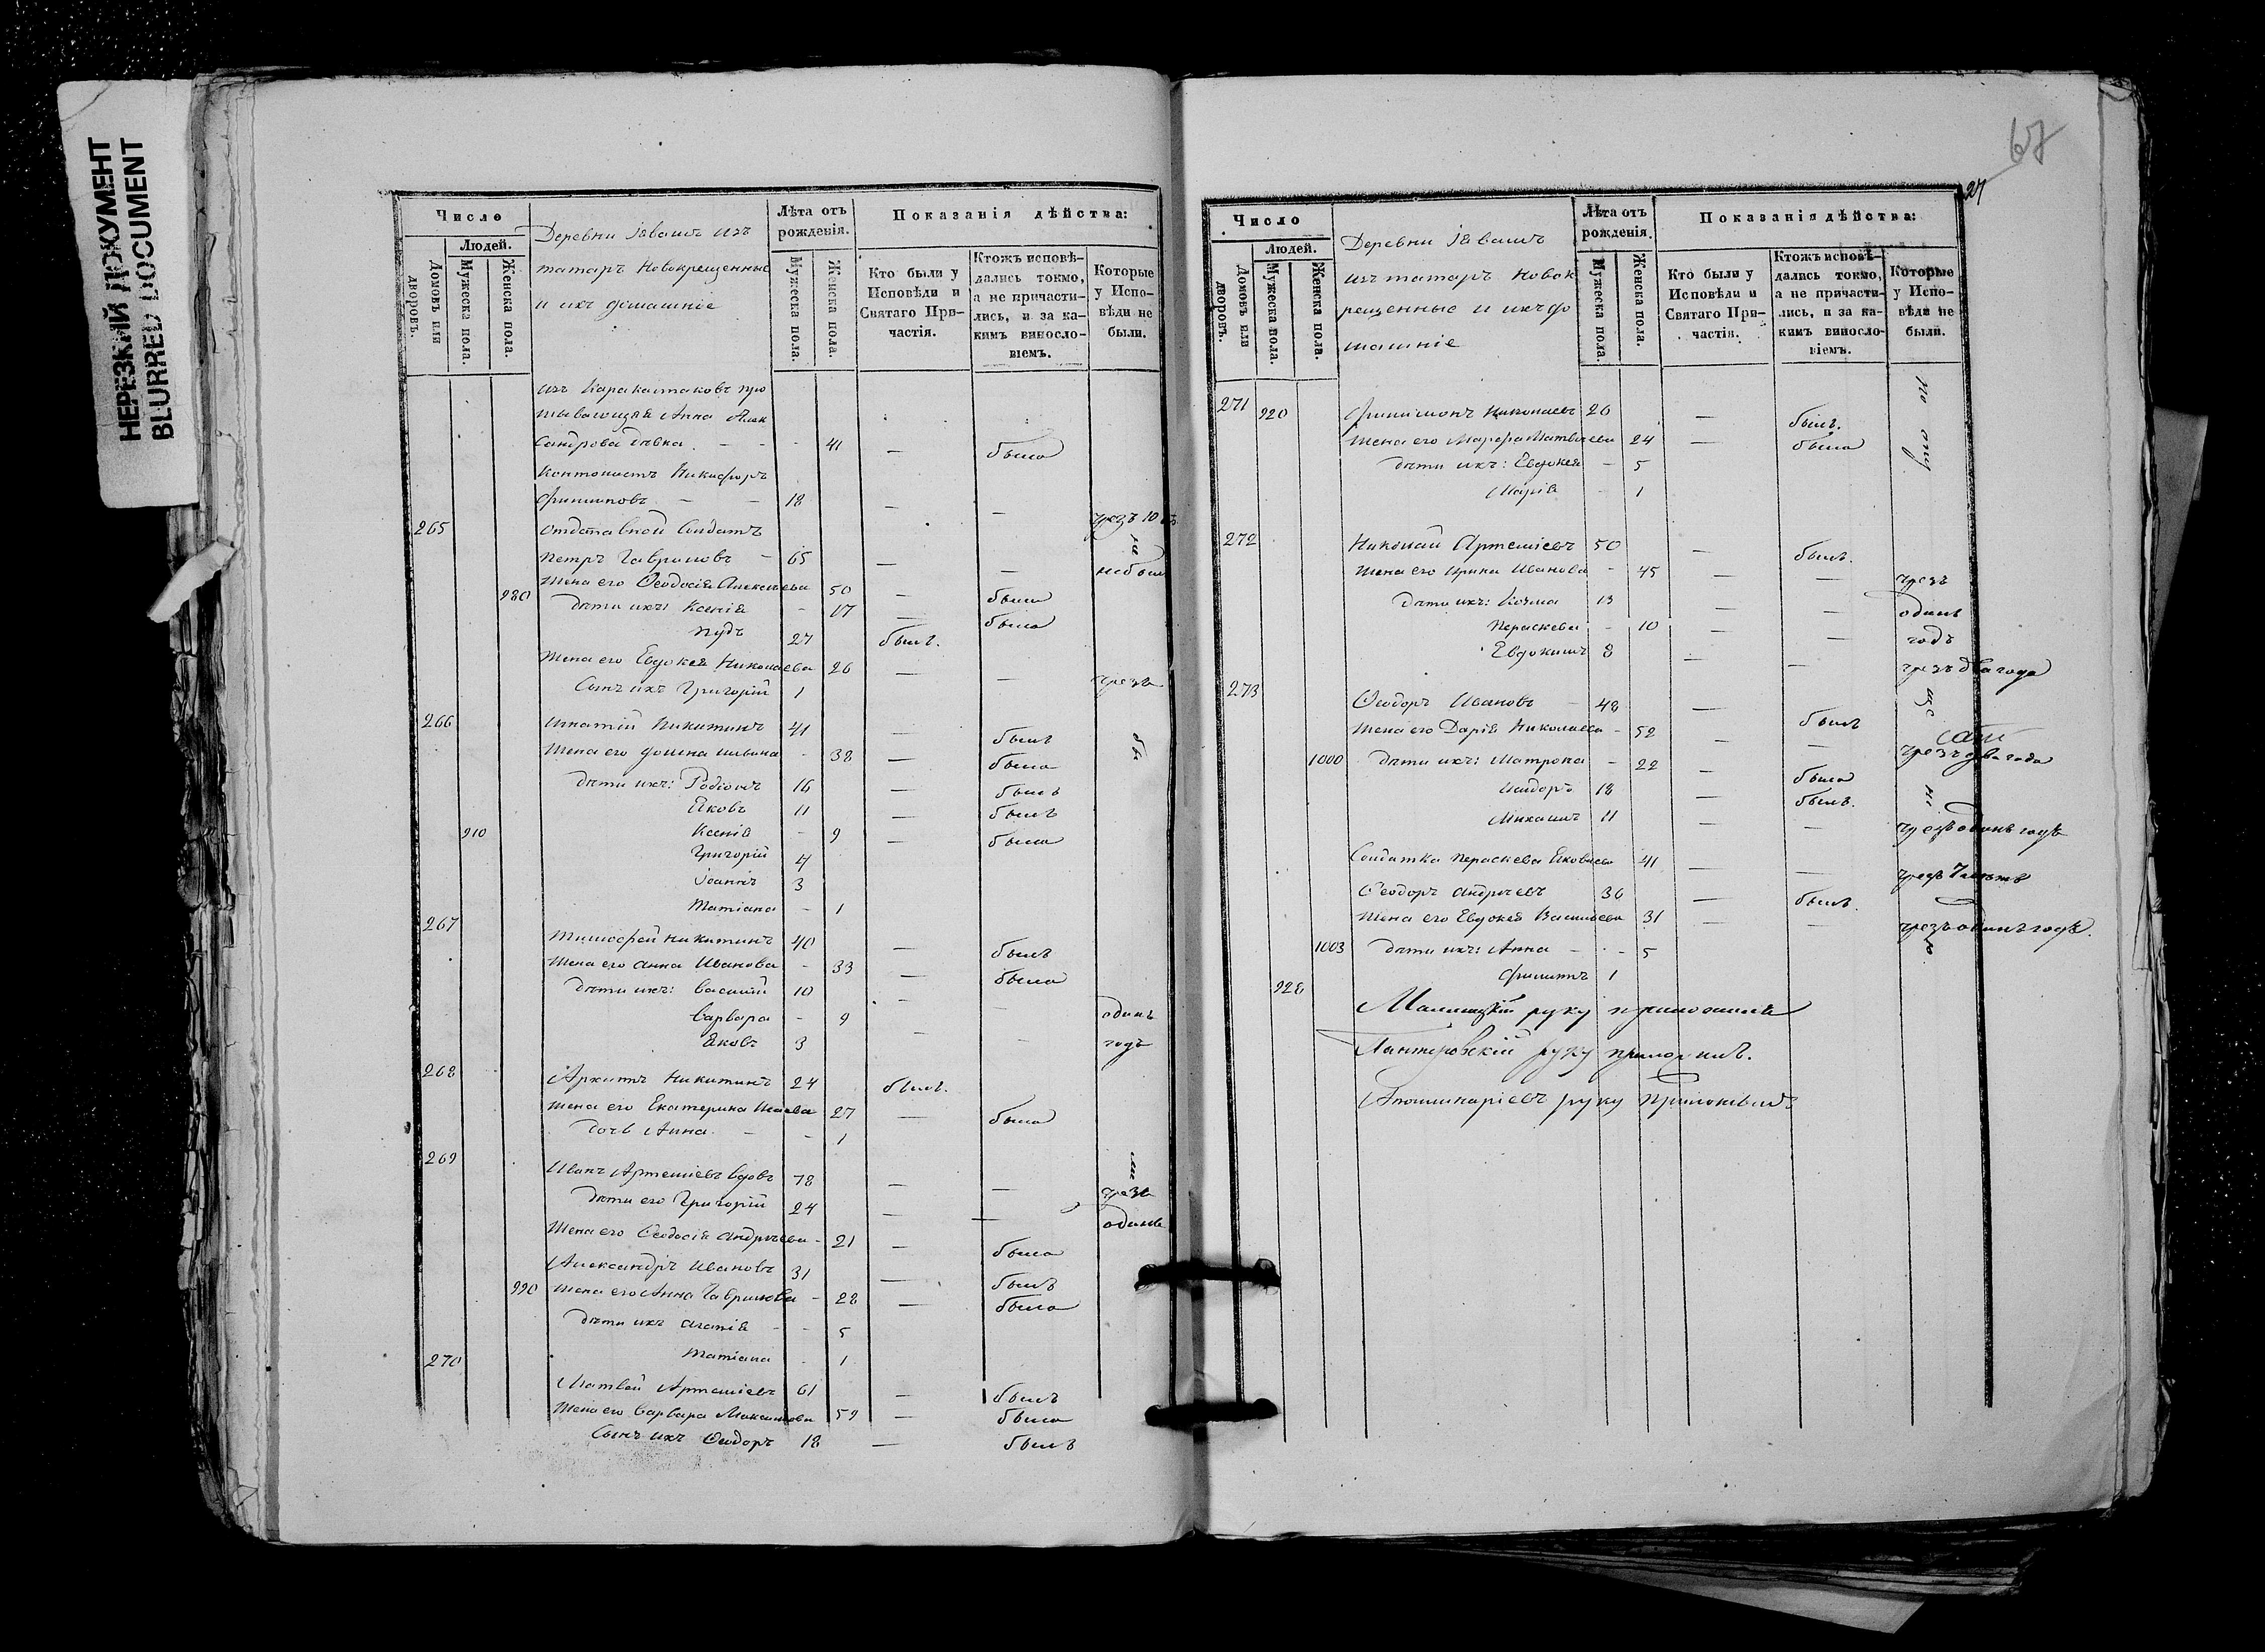 НЕРЕЗКИЙ ДОКУМЕНТ
BLURRED DOCUMENT
Число
Людей.
Домовъ или дворовъ.
Мужеска пола.
Женска пола.
Деревни Іваишъ изъ
татаръ Новокрещенные
и ихъ домашніе
Лѣта отъ рожденія.
Мужеска пола.
Женска пола.
Показанія дѣйства:
Кто были у Исповѣди и Святаго Причастія.
Ктожъ исповѣдались токмо, а не причастились, и за какимъ винословіемъ.
Которые у Исповѣди не были.
изъ
Анна Алек
сандрова дѣвка - - - 41 — была
Кантонистъ Никифоръ
Филиповъ - - 18 — —
265 Отставной Солдатъ чрезъ 10
Петръ Гавриловъ - 65 — — небылъ
980 Жена его Ѳеодосія Алексѣева 50 — была
дѣти ихъ: Ксенія - 17 — была
Пудъ 27 былъ.
Жена его Евдокея Николаева 26 — — чрезъ
Сынъ ихъ Григорій 1
266 Игнатій Никитинъ 41 — былъ
Жена его - 38 — была
дѣти ихъ: Родіонъ 16 — былъ
Яковъ 11 — былъ
910 Ксенія - 9 — была
Григорій 4
Іоаннъ 3
Татіана - 1
267 Тимофей Никитинъ 40 — былъ
Жена его Анна Иванова - 33 — была
дѣти ихъ: Василій 10 - —
Варвара - 9 — — одинъ
Яковъ 3 годъ
268 Архипъ Никитинъ 24 былъ.
Жена его Екатерина 27 — была
дочь Анна - - 1
269 Иванъ Артеміевъ вдовъ 78 — —
дѣти его Григорій 24 — — чрезъ одинъ
Жена его Ѳеодосія Андреева - 21 — была
Александръ Ивановъ 31 — былъ
990 Жена его Анна Гаврилова - 28 — была
дѣти ихъ Агапія - - 5
Татіана - 1
270 Матвей Артеміевъ 61 — былъ
Жена его Варвара Максимова 59 — была
Сынъ ихъ Ѳеодоръ 18 — былъ
67
27
Число
Людей.
Домовъ или дворовъ.
Мужеска пола.
Женска пола.
Деревни Іваишъ
изъ татаръ Новок
рещенные и ихъ до
машніе
Лѣта отъ рожденія.
Мужеска пола.
Женска пола.
Показанія дѣйства:
Кто были у Исповѣди и Святаго Причастія.
Ктожъ исповѣдались токмо, а не причастились, и за какимъ винословіемъ.
Которые у Исповѣди не были.
271 920 Филимонъ Николаевъ 26 — былъ.
Жена его Марфа Матвеева 24 — была
дѣти ихъ: Евдокея - 5
Марія - 1
272 Николай Артеміевъ 50 — былъ.
Жена его Ирина Иванова - 45 — — чрезъ
дѣти ихъ: Козма 13 — — одинъ
Параскева - 10 — — годъ
Евдокимъ 8 — — чрезъ два года
273 Ѳеодоръ Ивановъ - 48 — былъ
Жена его Дарія Николаева - 52 — чрезъ два года
1000 дѣти ихъ: Матрона - 22 — была
Исидоръ 18 — былъ.
Михаилъ 11 — — чрезъ одинъ годъ
Солдатка Параскева Яковлева 41 — — чрезъ 7 лѣтъ
Ѳеодоръ Андреевъ 36 — былъ.
Жена его Евдокея Василева 31 — — чрезъ одинъ годъ.
1003 дѣти ихъ: Анна - - - 5
928 Филипъ 1
руку приложилъ
Пантеровскій руку приложилъ.
Аполлинаріевъ руку приложилъ